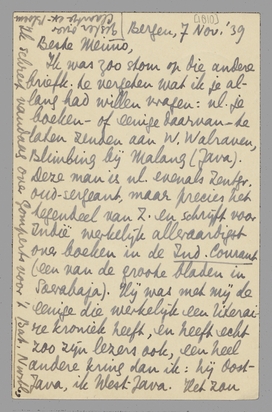 [1810]
Bergen, 7 Nov. '39
Beste Menno,
Ik was zoo stom op die andere
briefk. te vergeten wat ik je al-
lang had willen vragen: nl. je
boeken- of eenige daarvan- te
laten zenden aan W. Walraven,
Blimbing bij Malang (Java).
Deze man is nl. evenals Zentgr.
oud-sergeant, maar precies het
tegendeel van Z. en schrijft voor
Indië werkelijk alleraardigst
over boeken in de Ind. Courant
(een van de groote bladen in
Soerabaja). Hij was met mij de
eenige die werkelijk een literai-
re kroniek heeft, en heeft echt
zoo zijn lezers ook, een heel
andere kring dan ik: hij Oost-
Java, ik West-Java. Het zou
Ik schreef vandaag over Gomperts voor 't Bat. Nwsbl.,
gister over